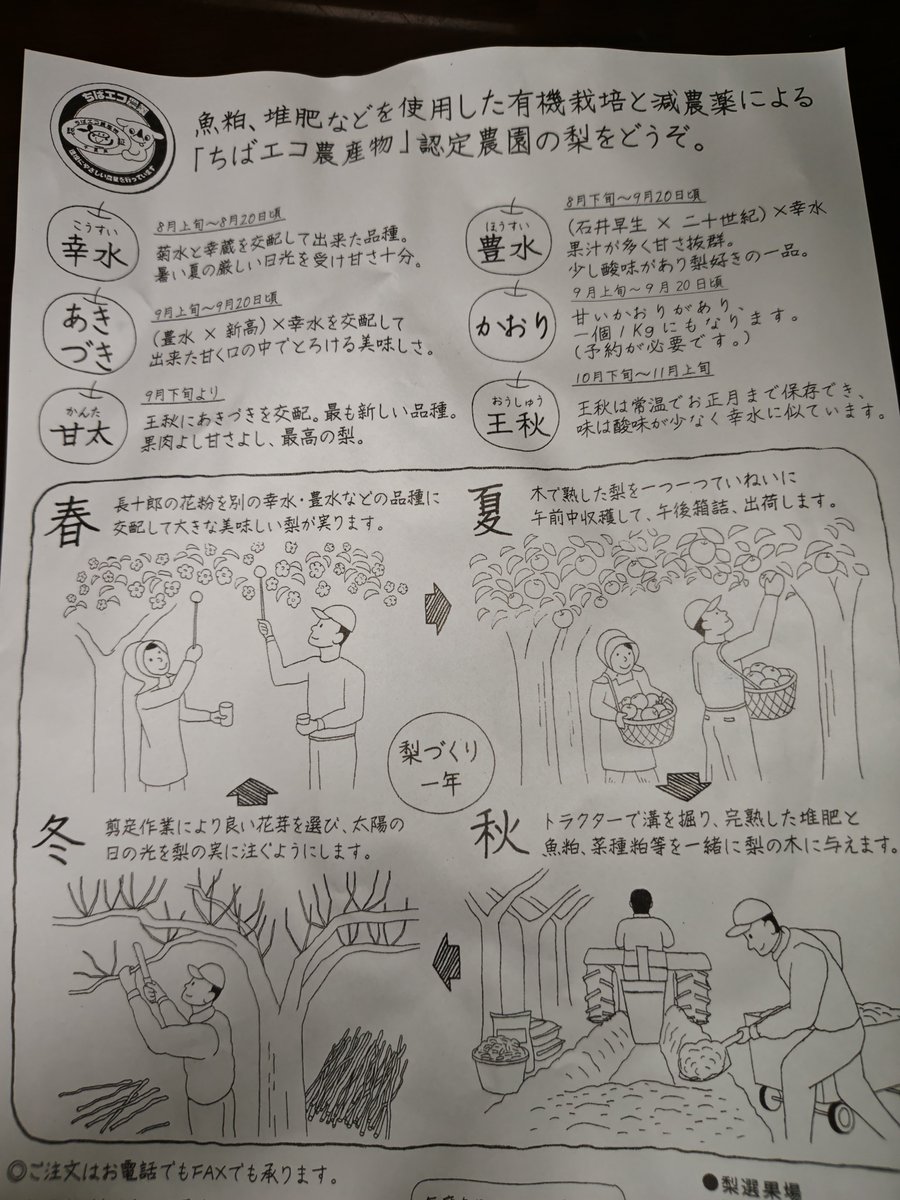 ちばエコ農業
ちばエコ農産物
環境にやさしい農業を行っています
魚粕、堆肥などを使用した有機栽培と減農薬による
「ちばエコ農産物」認定農園の梨をどうぞ。
こうすい
幸水
8月上旬〜8月20日頃
菊水と幸蔵を交配して出来た品種。
暑い夏の厳しい日光を受け甘さ十分。
ほうすい
豊水
8月下旬〜9月20日頃
(石井早生 × 二十世紀)×幸水
果汁が多く甘さ抜群。
少し酸味があり梨好きの一品。
あき
づき
9月上旬〜9月20日頃
(豊水 × 新高)×幸水を交配して
出来た甘く口の中でとろける美味しさ。
かおり
9月上旬〜9月20日頃
甘いかおりがあり、
一個1Kgにもなります。
(予約が必要です。)
かんた
甘太
9月下旬より
王秋にあきづきを交配。最も新しい品種。
果肉よし甘さよし、最高の梨。
おうしゅう
王秋
10月下旬〜11月上旬
王秋は常温でお正月まで保存でき、
味は酸味が少なく幸水に似ています。
春
長十郎の花粉を別の幸水・豊水などの品種に
交配して大きな美味しい梨が実ります。
夏
木で熟した梨を一つ一つていねいに
午前中収穫して、午後箱詰、出荷します。
梨づくり
一年
冬
剪定作業により良い花芽を選び、太陽の
日の光を梨の実に注ぐようにします。
秋
トラクターで溝を掘り、完熟した堆肥と
魚粕、菜種粕等を一緒に梨の木に与えます。
◎ご注文はお電話でもFAXでも承ります。
●梨選果場